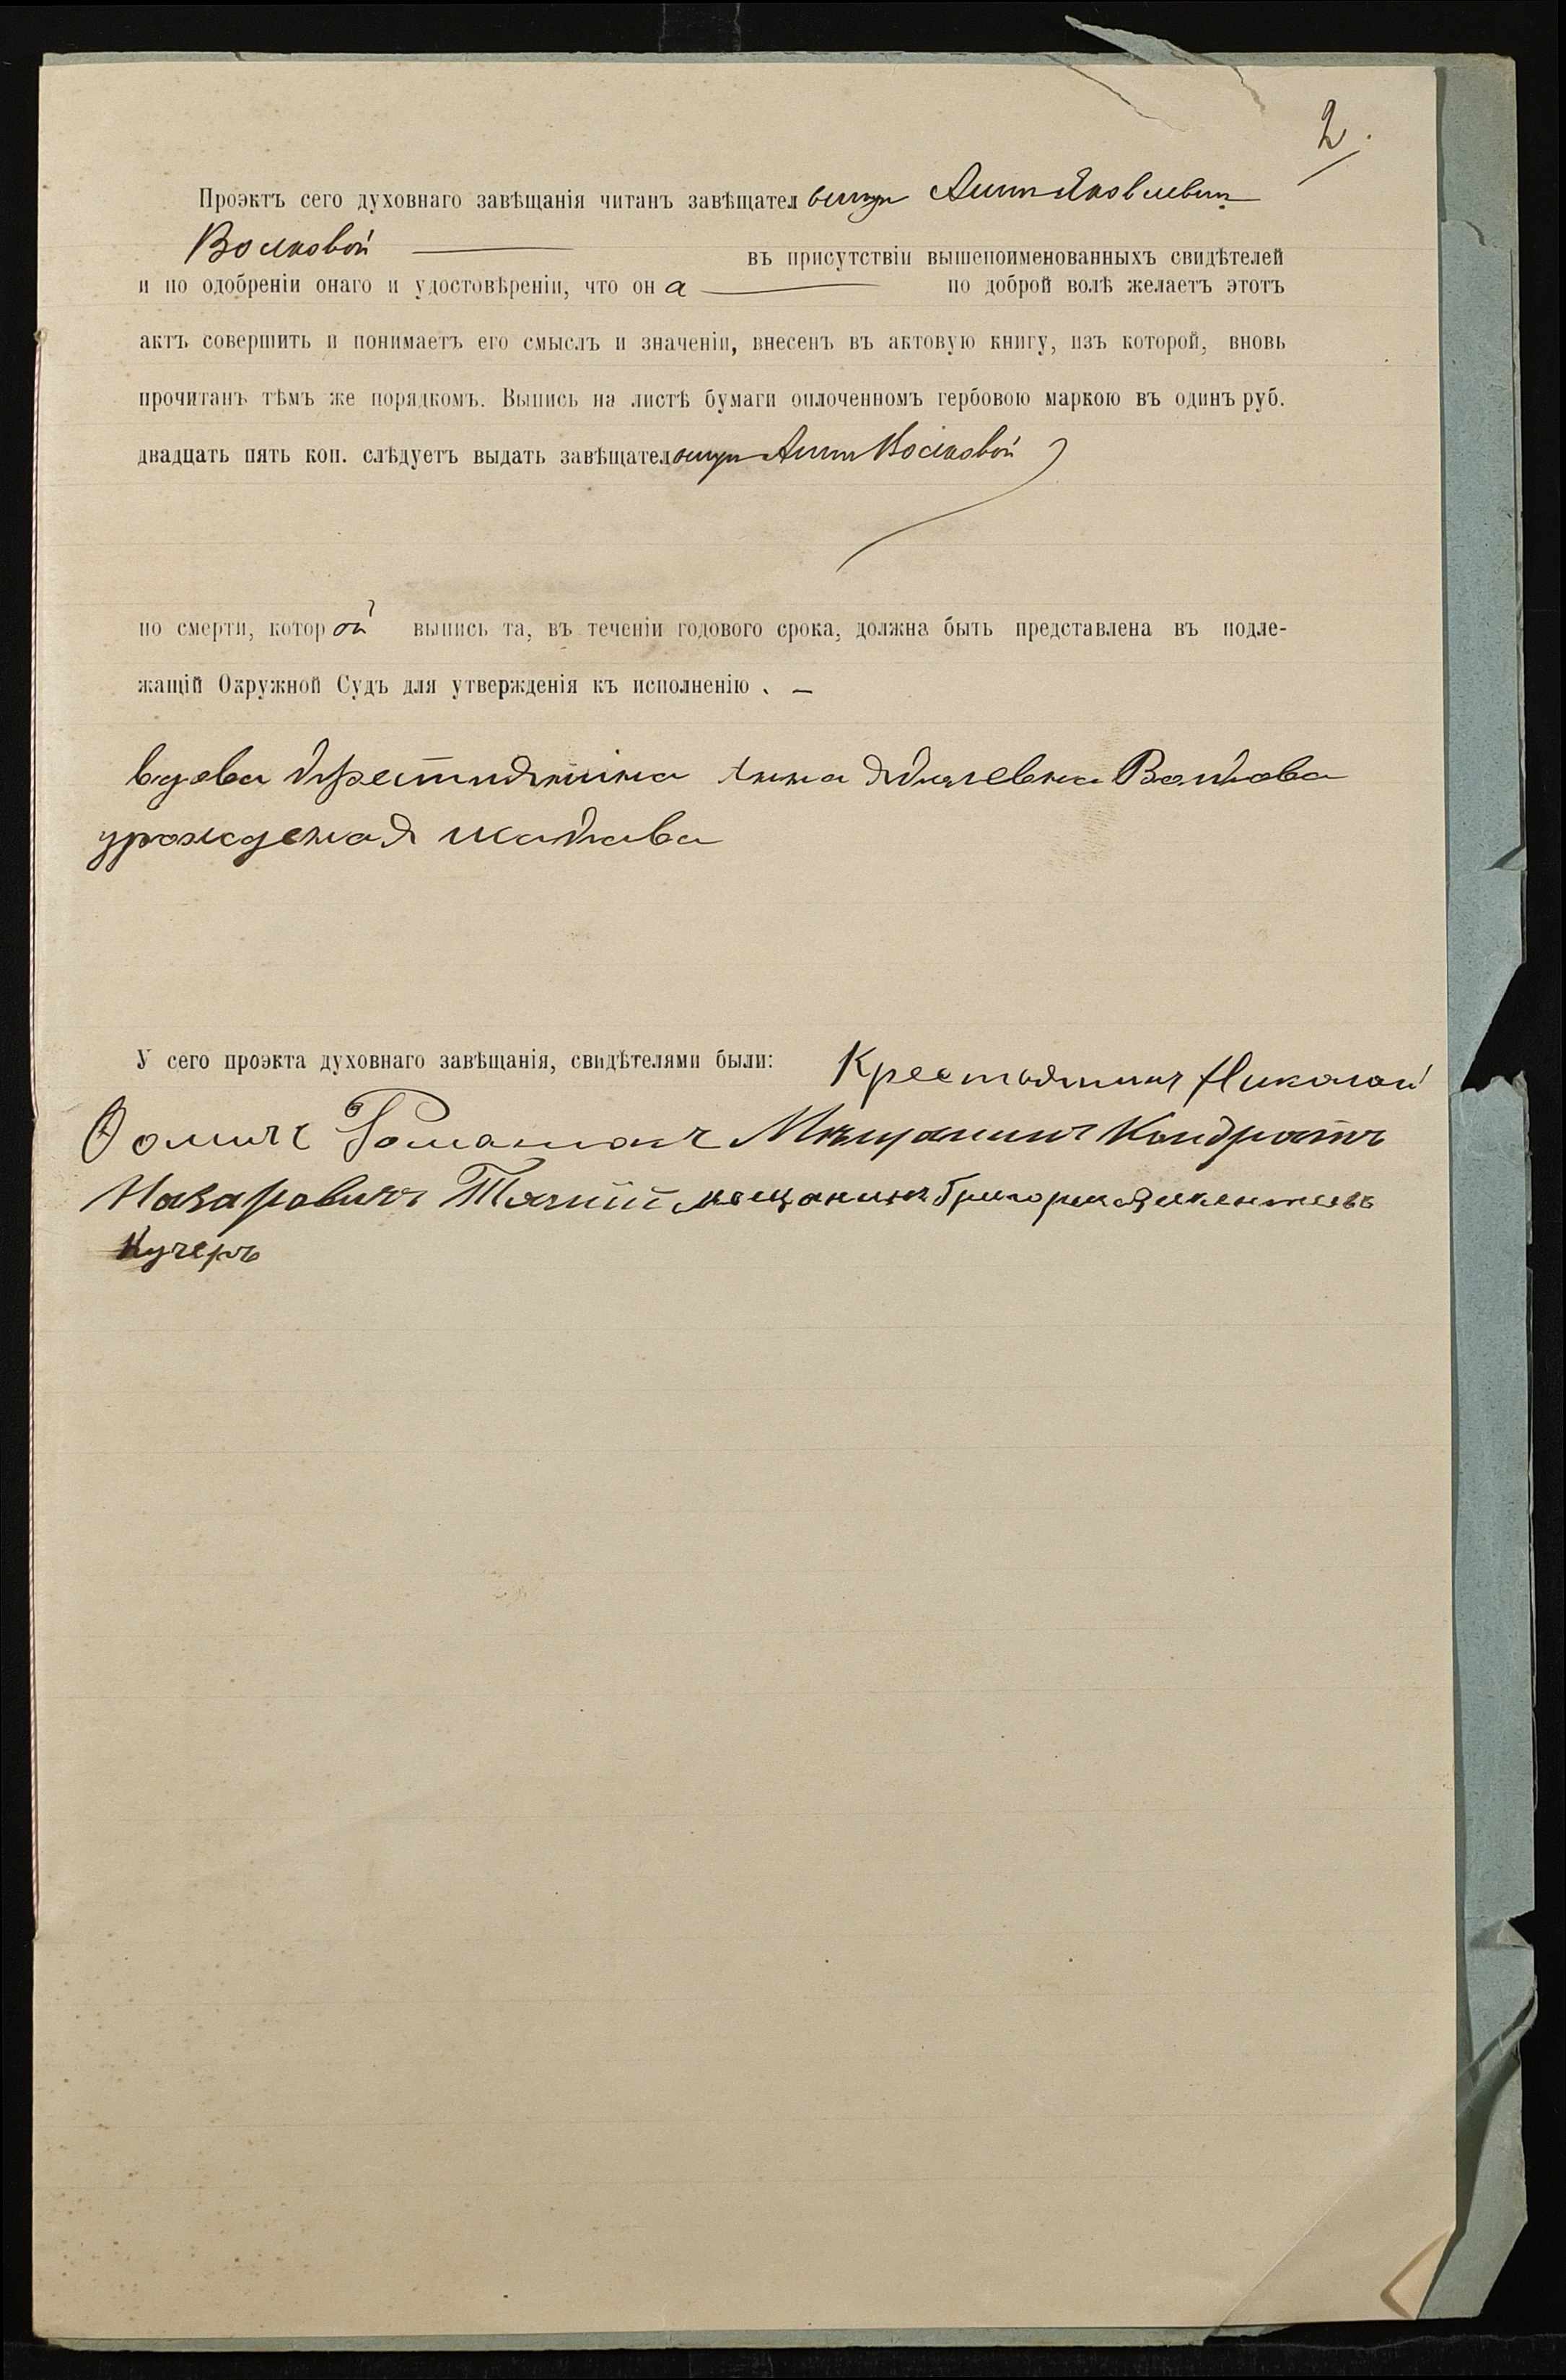 2.
Проэктъ сего духовнаго завѣщанія читанъ завѣщательницѣ Аннѣ Яковлевнѣ
Волковой въ присутствіи вышепоименованныхъ свидѣтелей
и по одобреніи онаго и удостовѣреніи, что она по доброй волѣ желаетъ этотъ
актъ совершить и понимаетъ его смыслъ и значеніи, внесенъ въ актовую книгу, изъ которой, вновь
прочитанъ тѣмъ же порядкомъ. Выпись на листѣ бумаги оплоченномъ гербовою маркою въ одинъ руб.
двадцать пять коп. слѣдуетъ выдать завѣщательницѣ Аннѣ Волковой
по смерти, которой выпись та, въ теченіи годового срока, должна быть представлена въ подле-
жащій Окружной Судъ для утвержденія къ исполненію. —
вдова Анна Волкова
урожденая
У сего проэкта духовнаго завѣщанія, свидѣтелями были: Крестьянинъ Николай
Ѳомичъ Мѣщанинъ Кондратъ
Назаровичъ мещанинъ Григорий
Кучеръ